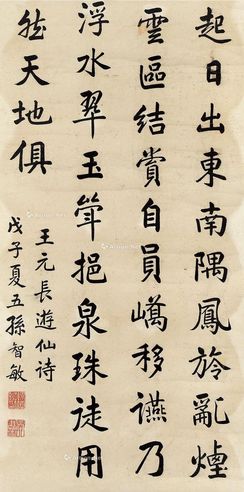 起日出東南隅鳳旍亂煙
雲區結賞自員嶠移讌乃
浮水翠玉斝挹泉珠徒用
然天地俱
王元長遊仙詩
戊子夏五孫智敏